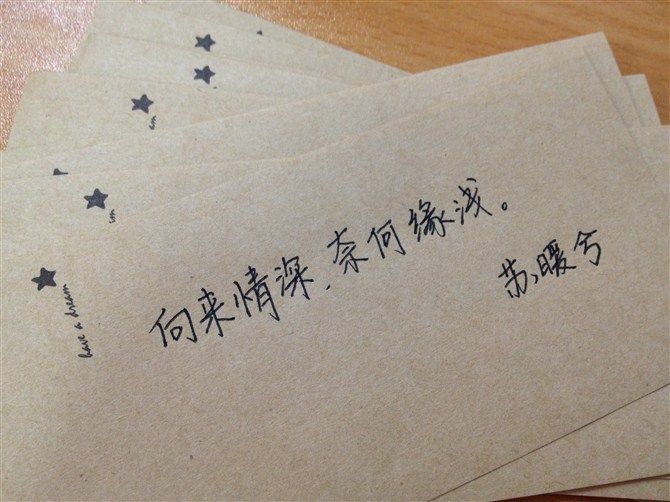 向来情深,奈何缘浅。
苏暖兮
have a dream
am